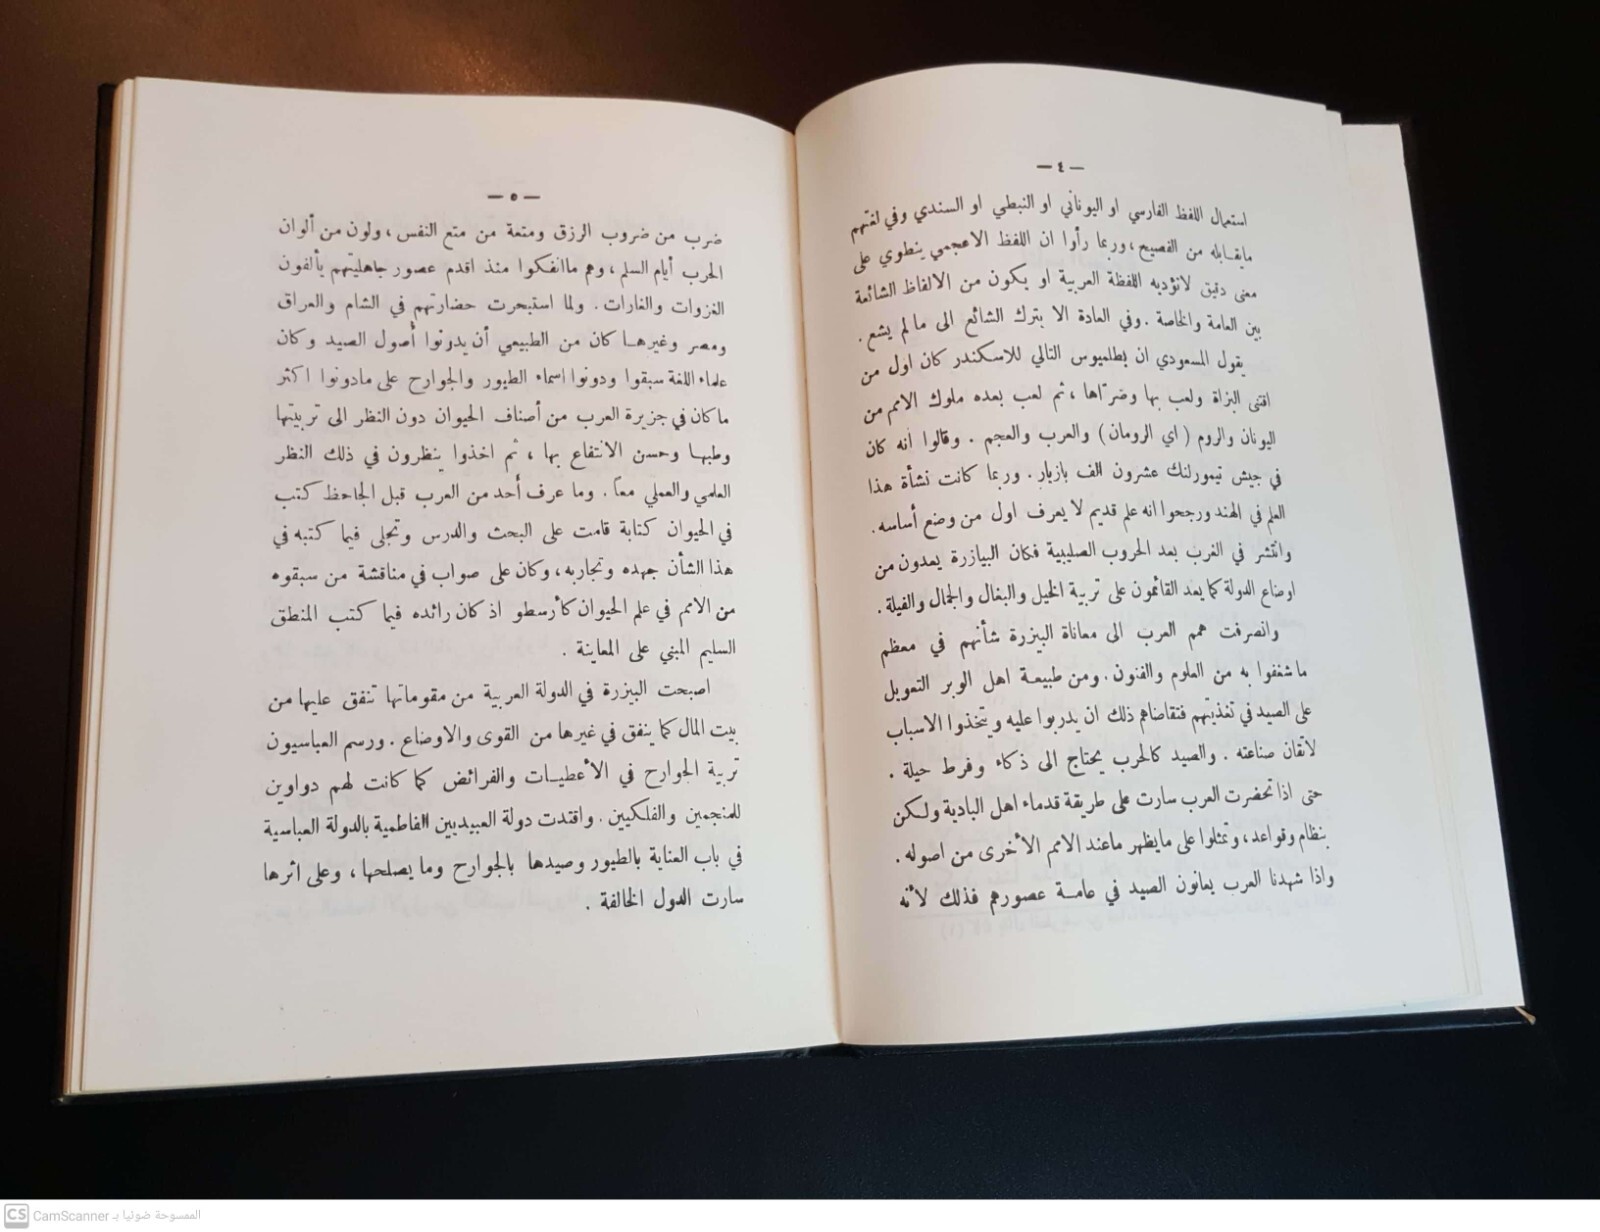 — ٤ —
استعمال اللفظ الفارسي او اليوناني او النبطي او السندي وفي لغتهم
مايقابله من الفصيح، وربما رأوا ان اللفظ الاعجمي ينطوي على
معنى دقيق لاتؤديه اللفظة العربية او يكون من الالفاظ الشائعة
بين العامة والخاصة . وفي العادة الا يترك الشائع الى مالم يشع .
يقول المسعودي ان بطلميوس التالي للاسكندر كان اول من
اقتنى البزاة ولعب بها وضرّاها ، ثم لعب بعده ملوك الامم من
اليونان والروم ( اي الرومان ) والعرب والعجم . وقالوا انه كان
في جيش تيمورلنك عشرون الف بازيار . وربما كانت نشأة هذا
العلم في الهند ورجحوا انه علم قديم لا يعرف اول من وضع أساسه .
وانتشر في الغرب بعد الحروب الصليبية فكان البيازرة يعدون من
اوضاع الدولة كما يعد القائمون على تربية الخيل والبغال والجمال والفيلة .
وانصرفت همم العرب الى معاناة البيزرة شأنهم في معظم
ماشغفوا به من العلوم والفنون . ومن طبيعة اهل الوبر التعويل
على الصيد في تغذيتهم فتقاضاهم ذلك ان يدربوا عليه ويتخذوا الاسباب
لاتقان صناعته . والصيد كالحرب يحتاج الى ذكاء وفرط حيلة .
حتى اذا تحضرت العرب سارت على طريقة قدماء اهل البادية ولكن
بنظام وقواعد ، وتمثلوا على مايظهر ماعند الامم الأخرى من اصوله .
واذا شهدنا العرب يعانون الصيد في عامة عصورهم فذلك لأنه
— ٥ —
ضرب من ضروب الرزق ومتعة من متع النفس ، ولون من ألوان
الحرب أيام السلم ، وهم ماانفكوا منذ اقدم عصور جاهليتهم يألفون
الغزوات والغارات . ولما استبحرت حضارتهم في الشام والعراق
ومصر وغيرها كان من الطبيعي أن يدونوا أصول الصيد وكان
علماء اللغة سبقوا ودونوا اسماء الطيور والجوارح على مادونوا اكثر
ماكان في جزيرة العرب من أصناف الحيوان دون النظر الى تربيتها
وطبها وحسن الانتفاع بها ، ثم اخذوا ينظرون في ذلك النظر
العلمي والعملي معاً . وما عرف أحد من العرب قبل الجاحظ كتب
في الحيوان كتابة قامت على البحث والدرس وتجلى فيما كتبه في
هذا الشأن جهده وتجاربه ، وكان على صواب في مناقشة من سبقوه
من الامم في علم الحيوان كأرسطو اذ كان رائده فيما كتب المنطق
السليم المبني على المعاينة .
اصبحت البيزرة في الدولة العربية من مقوماتها تنفق عليها من
بيت المال كما ينفق في غيرها من القوى والاوضاع . ورسم العباسيون
تربية الجوارح في الأعطيات والفرائض كما كانت لهم دواوين
للمنجمين والفلكيين . واقتدت دولة العبيديين الفاطمية بالدولة العباسية
في باب العناية بالطيور وصيدها بالجوارح وما يصلحها ، وعلى اثرها
سارت الدول الخالفة .
CS CamScanner الممسوحة ضوئيا بـ